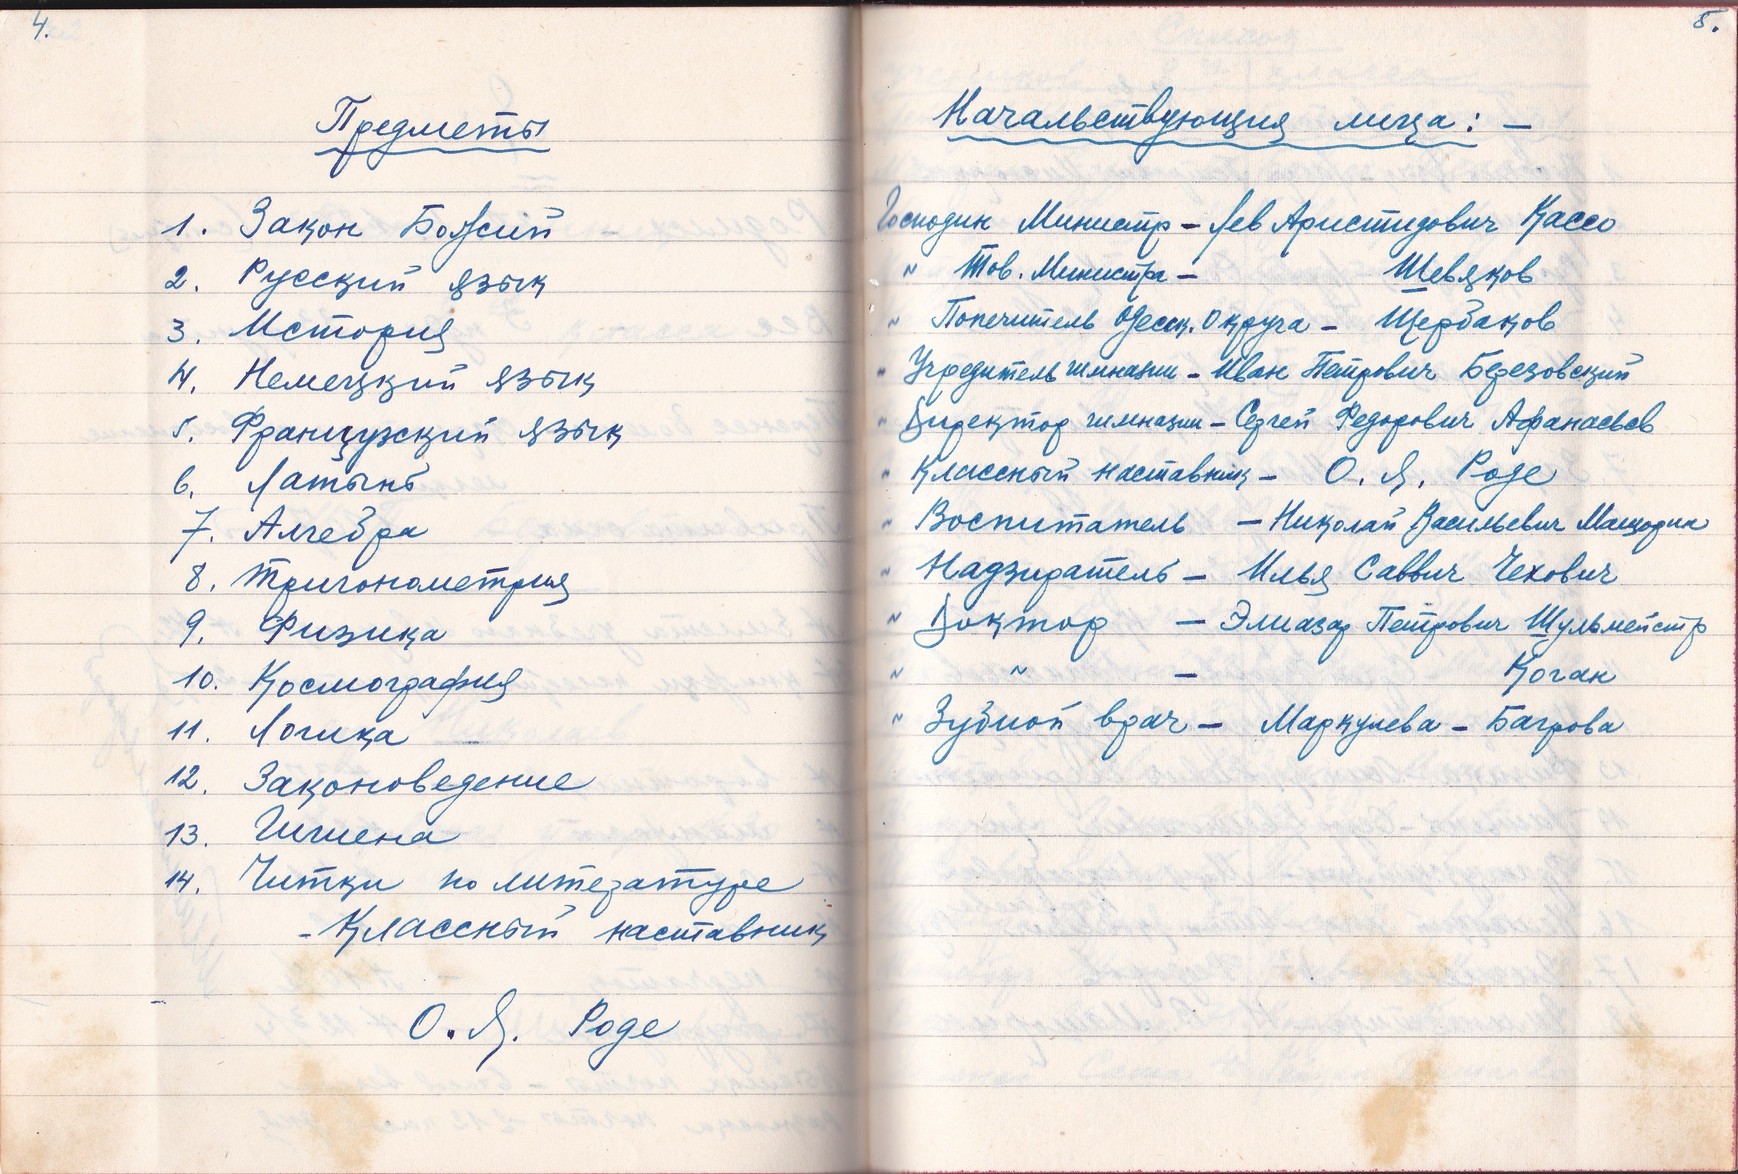 4.
Предметы
1. Закон Божий
2. Русский язык
3. История
4. Немецкий язык
5. Французский язык
6. Латынь
7. Алгебра
8. Тригонометрия
9. Физика
10. Космография
11. Логика
12. Законоведение
13. Гигиена
14. Читки по литературе
- Классный наставник
О. Я. Роде
5.
Начальствующия лица: —
Господин Министр - Лев Аристидович Кассо
" Тов. Министра - Шевяков
" Попечитель Одесск. Округа - Щербаков
" Учредитель гимназии - Иван Петрович Березовский
" Директор гимназии - Сергей Федорович Афанасьев
" Классный наставник - О. Я. Роде
" Воспитатель - Николай Васильевич
" Надзиратель - Илья Саввич Чехович
" Доктор - Элиазар Петрович Шульмейстр
" " - Коган
" Зубной врач - Маркулева - Багрова